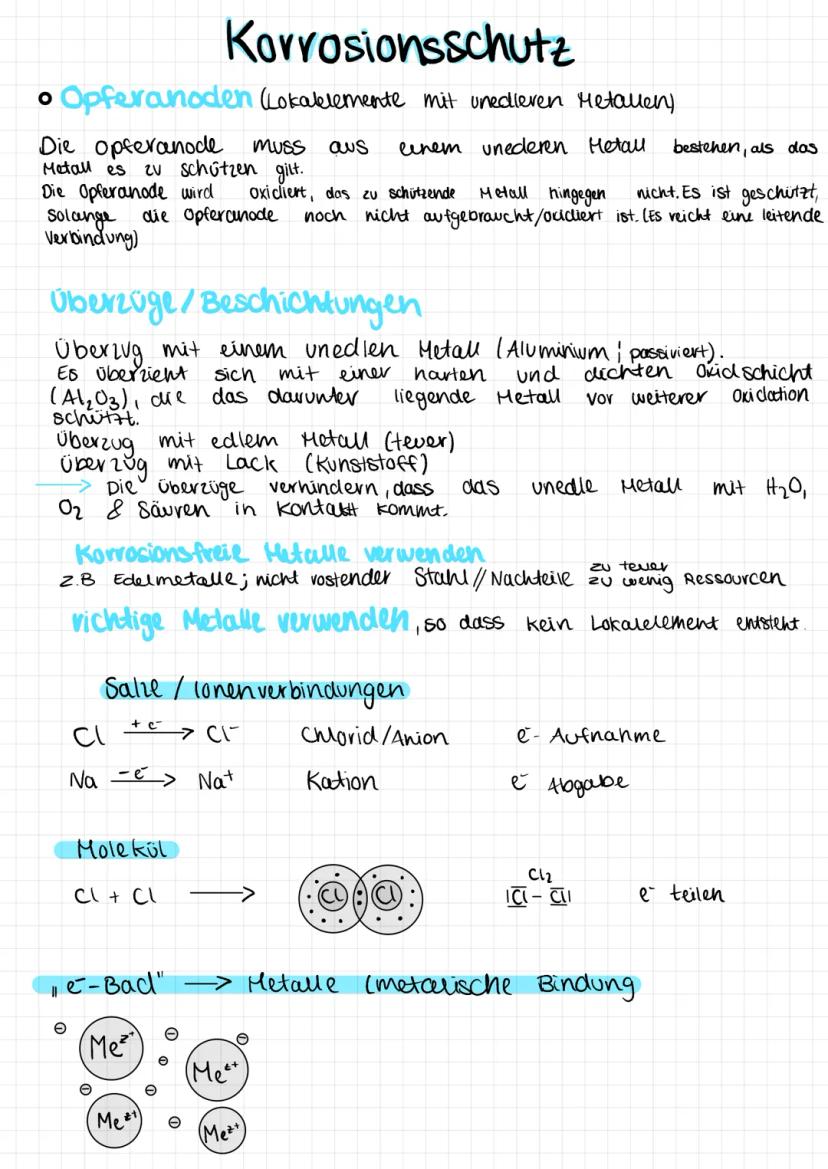 Korrosionsschutz
Opferanoden (Lokalelemente mit unedleren Metallen)
Die Opferanode muss aus einem unederen Metall bestehen, als das
Metall es zu schützen gilt.
Die Opferanode wird oxidiert, das zu schützende Metall hingegen nicht. Es ist geschützt,
solange die Opferanode noch nicht aufgebraucht/oxidiert ist. (Es reicht eine leitende
Verbindung)
Überzüge/Beschichtungen
Überzug mit einem unedlen Metall (Aluminium ; passiviert).
Es überzieht sich mit einer harten und dichten Oxidschicht
(Al₂O₃), die das darunter liegende Metall vor weiterer Oxidation
schützt.
Überzug mit edlem Metall (teuer)
Überzug mit Lack (Kunststoff)
→ Die Überzüge verhindern, dass das unedle Metall mit H₂O,
O₂ & Säuren in Kontakt kommt.
Korrosionsfreie Metalle verwenden
z.B Edelmetalle; nicht rostender Stahl // Nachteile zu teuer
zu wenig Ressourcen
richtige Metalle verwenden, so dass kein Lokalelement entsteht.
Salze / Ionenverbindungen
Cl + e⁻ → Cl⁻ Chlorid/Anion e⁻ - Aufnahme
Na - e⁻ → Na⁺ Kation e⁻ Abgabe
Molekül
Cl₂
Cl + Cl → Cl Cl |Cl - Cl| e⁻ teilen
"e⁻-Bad" → Metalle (metallische Bindung
Meᶻ⁺
Meᶻ⁺
Meᶻ⁺
Meᶻ⁺